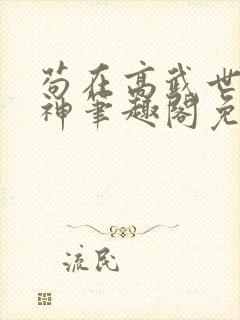 苟在高武世
神笔趣阁免
流民